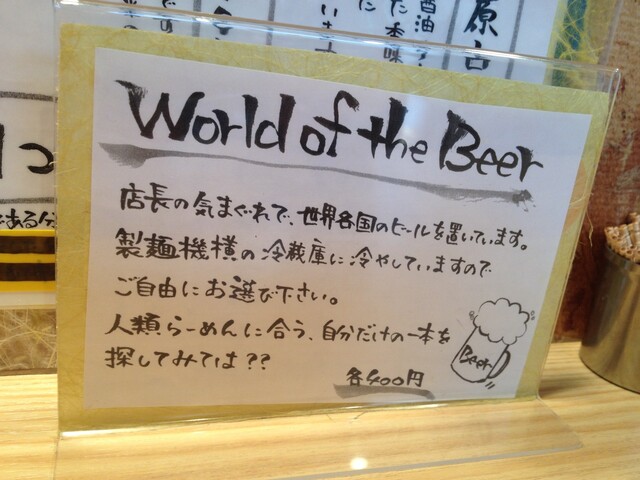 World of the Beer
店長の気まぐれで、世界各国のビールを置いています。
製麺機横の冷蔵庫に冷やしていますので
ご自由にお選び下さい。
人類らーめんに合う、自分だけの一本を
探してみては??
各400円
Beer